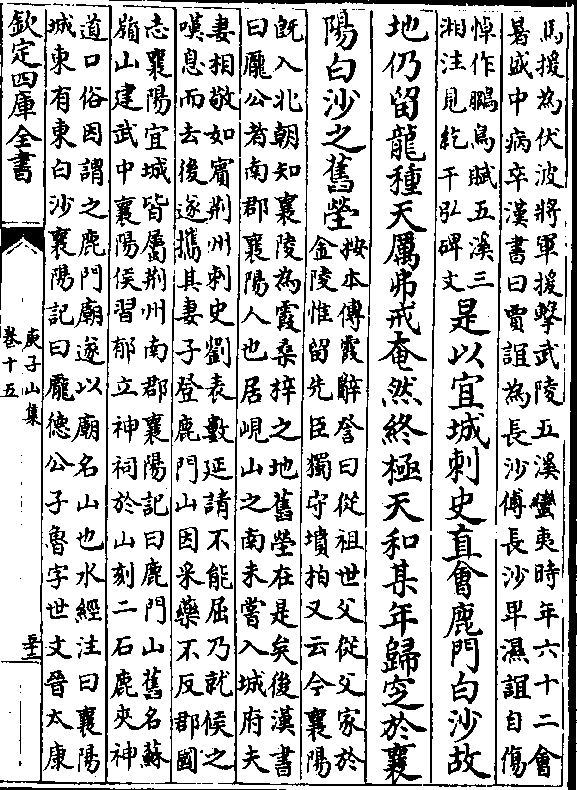 馬援為伏波將軍援擊武陵五溪蠻夷時年六十二會
暑盛中病卒漢書曰賈誼為長沙傅長沙卑濕誼自傷
悼作鵩鳥賦五溪三
湘注見紇干弘碑文
是以宜城刺史直會鹿門白沙故
地仍留龍種天厲弗戒奄然終極天和某年歸窆於襄
陽白沙之舊塋
按本傳霞辭詧曰從祖世父從父家於
金陵惟留先臣獨守墳柏又云今襄陽
旣入北朝知襄陵為霞桑梓之地舊塋在是矣後漢書
曰龎公者南郡襄陽人也居峴山之南未嘗入城府夫
妻相敬如賓荆州刺史劉表數延請不能屈乃就候之
嘆息而去後遂攜其妻子登鹿門山因采藥不反郡國
志襄陽宜城皆屬荆州南郡襄陽記曰鹿門山舊名蘇
嶺山建武中襄陽侯習郁立神祠於山刻二石鹿夾神
道口俗因謂之鹿門廟遂以廟名山也水經注曰襄陽
城東有東白沙襄陽記曰龎德公子魯字世文晉太康
欽定四庫全書
庾子山集
卷十五